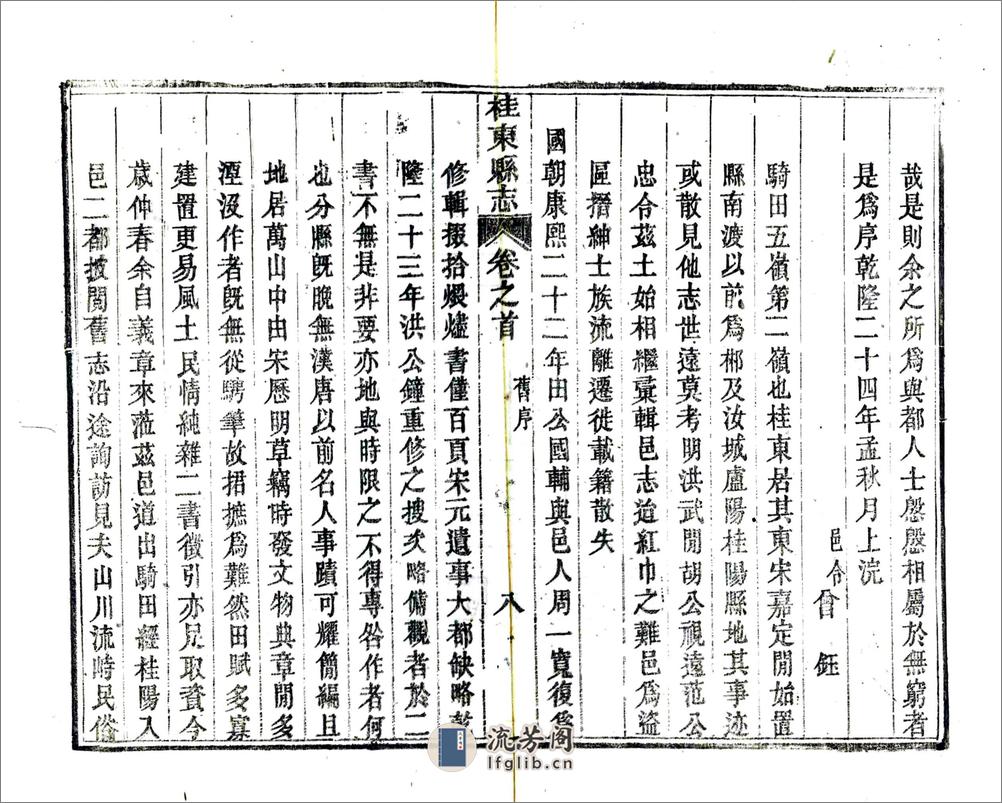 哉是則余之所爲與都人士慇慇相屬於無窮者
是爲序乾隆二十四年孟秋月上浣
邑令曾 鈺
騎田五嶺第二嶺也桂東居其東宋嘉定間始置
縣南渡以前爲郴及汝城盧陽桂陽縣地其事迹
或散見他志世遠莫考明洪武間胡公視遠范公
忠令茲土始相繼彙輯邑志造紅巾之難邑爲盜
區搢紳士族流離遷徙載籍散失
國朝康熙二十二年田公國輔與邑人周一寬復爲
桂東縣志 卷之首 舊序 八
修輯掇拾煨燼書僅百頁宋元遺事大都缺略乾
隆二十三年洪公鐘重修之搜欠略備觀者於二
書不無是非要亦地與時限之不得專咎作者何
也分縣旣晚無漢唐以前名人事蹟可耀簡編且
地居萬山中由宋歷明草竊時發文物典章閒多
湮沒作者旣無從騁筆故捃摭爲難然田賦多寡
建置更易風土民情純雜二書徵引亦足取資今
歲仲春余自義章來蒞茲邑道出騎田經桂陽入
邑二都披閱舊志沿途詢訪見夫山川流峙民俗
流芳阁
lfglib.cn